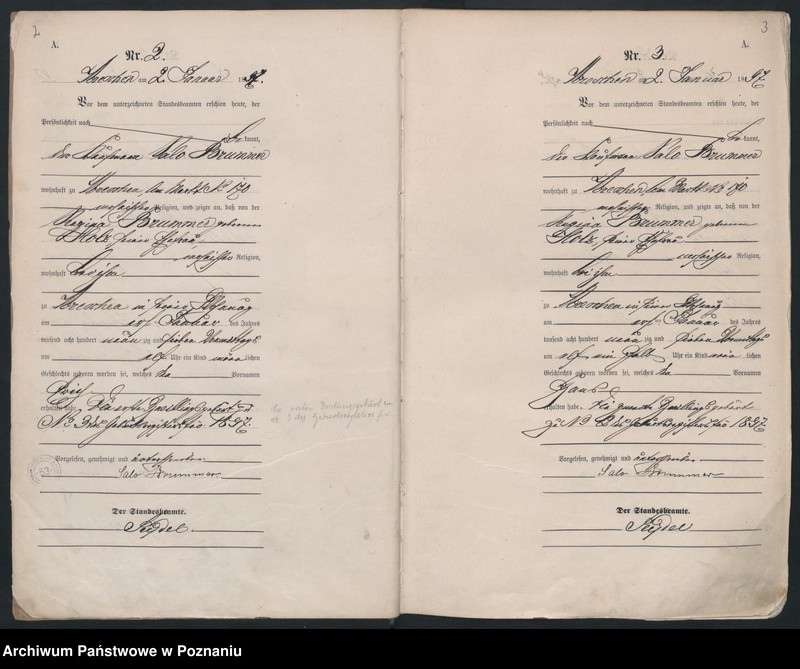 2
A.
Nr. 2.
Wreschen am 2. Januar 1897.
Vor dem unterzeichneten Standesbeamten erschien heute, der
Persönlichkeit nach
be kannt,
der Kaufmann Salo Brummer
wohnhaft zu Wreschen am Markt No 170
mosaischer Religion, und zeigte an, daß von der
Regina Brummer geborenen
Holz, seiner Ehefrau
mosaischer Religion,
wohnhaft bei ihm
zu Wreschen in seiner Wohnung
am ersten Januar des Jahres
tausend acht hundert neun zig und sieben Vormittags
um elf Uhr ein Kind männ lichen
Geschlechts geboren worden sei, welches den Vornamen
Erich
erhalten habe. Die erste Zwillingsgeburt
No 3 des Geburtsregisters pro 1897.
Vorgelesen, genehmigt und unterschrieben
Salo Brummer
Der Standesbeamte.
Seydel
3
A.
Nr. 3.
Wreschen am 2. Januar 1897
Vor dem unterzeichneten Standesbeamten erschien heute, der
Persönlichkeit nach
be kannt,
der Kaufmann Salo Brummer
wohnhaft zu Wreschen am Markt No 170
mosaischer Religion, und zeigte an, daß von der
Regina Brummer geborenen
Holz, seiner Ehefrau
mosaischer Religion,
wohnhaft bei ihm
zu Wreschen in seiner Wohnung
am ersten Januar des Jahres
tausend acht hundert neun zig und sieben Vormittags
um elf ein halb Uhr ein Kind männ lichen
Geschlechts geboren worden sei, welches den Vornamen
Hans
erhalten habe. Die zweite Zwillingsgeburt
zu No 2 des Geburtsregisters pro 1897.
Vorgelesen, genehmigt und unterschrieben
Salo Brummer
Der Standesbeamte.
Seydel
Archiwum Państwowe w Poznaniu